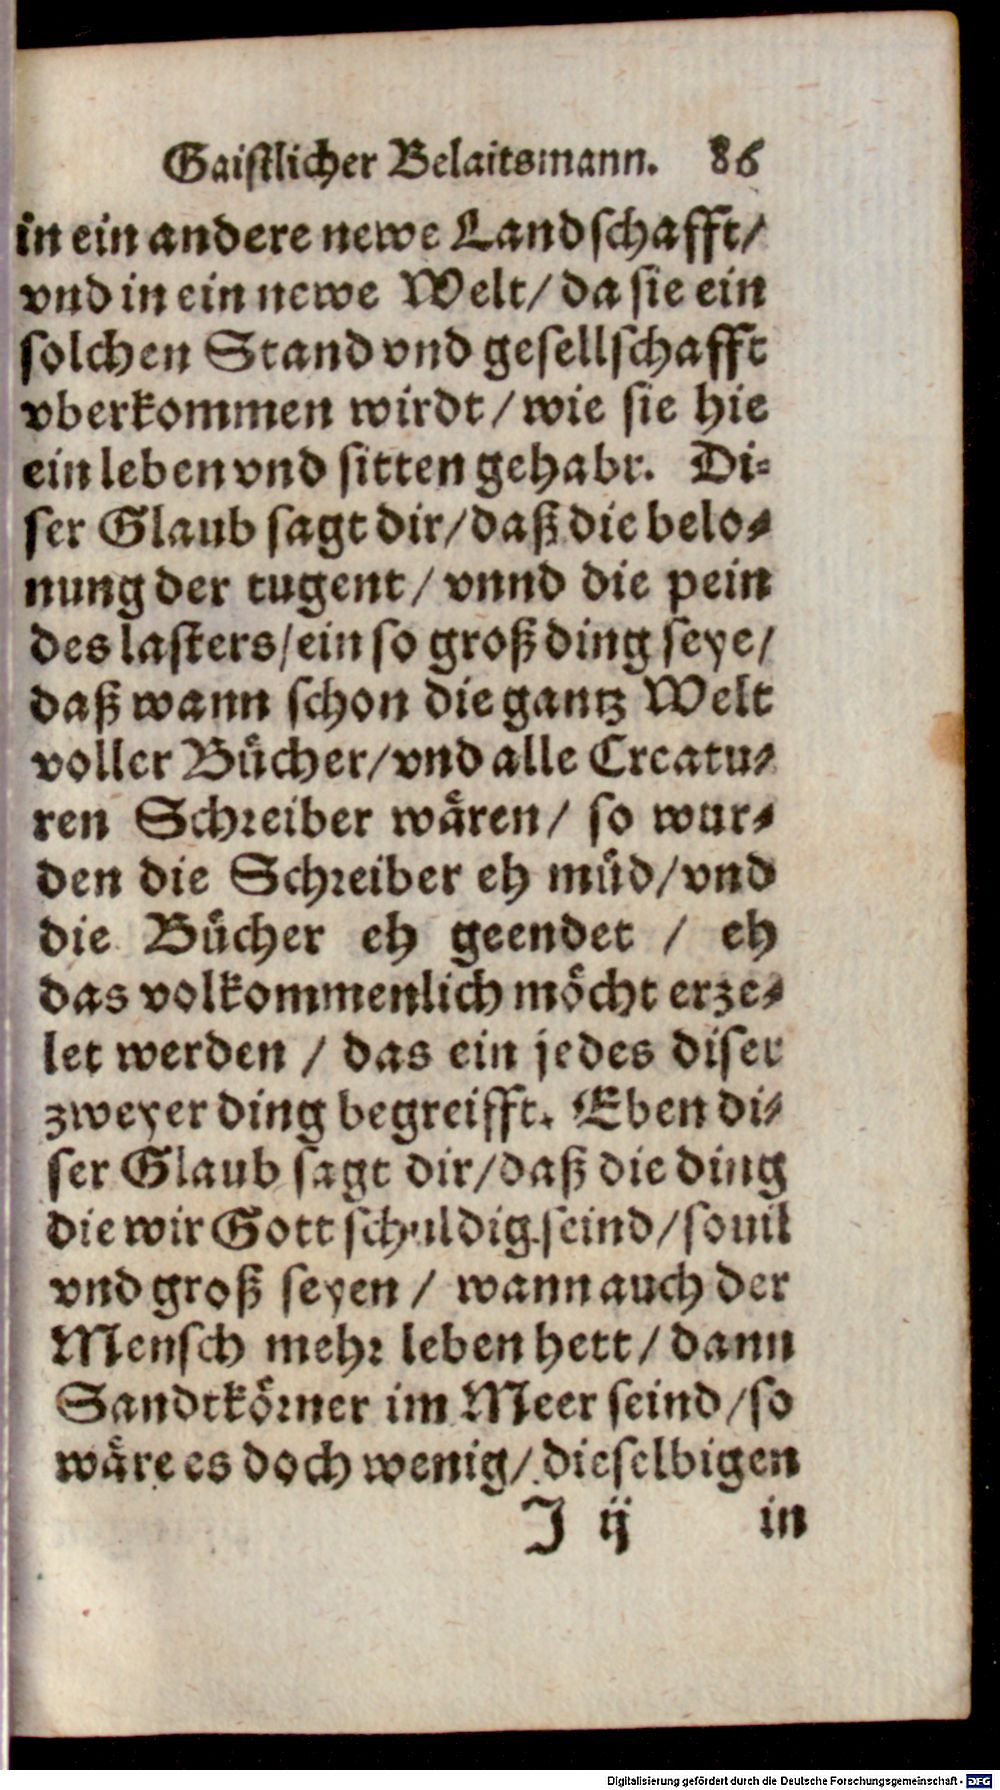 Gaistlicher Belaitsmann. 86
in ein andere newe Landschafft/
vnd in ein newe Welt/ da sie ein
solchen Stand vnd gesellschafft
vberkommen wirdt / wie sie hie
ein leben vnd sitten gehabt. Di-
ser Glaub sagt dir/ daß die belo-
nung der tugent / vnnd die pein
des lasters/ ein so groß ding seye/
daß wann schon die gantz Welt
voller Bücher/ vnd alle Creatu-
ren Schreiber wären / so wur-
den die Schreiber eh müd/ vnd
die Bücher eh geendet / eh
das volkommenlich möcht erze-
let werden / das ein jedes diser
zweyer ding begreifft. Eben di-
ser Glaub sagt dir/ daß die ding
die wir Gott schuldig seind/ souil
vnd groß seyen / wann auch der
Mensch mehr leben hett / dann
Sandtkörner im Meer seind / so
wäre es doch wenig/ dieselbigen
J ij in
Digitalisierung gefördert durch die Deutsche Forschungsgemeinschaft - DFG